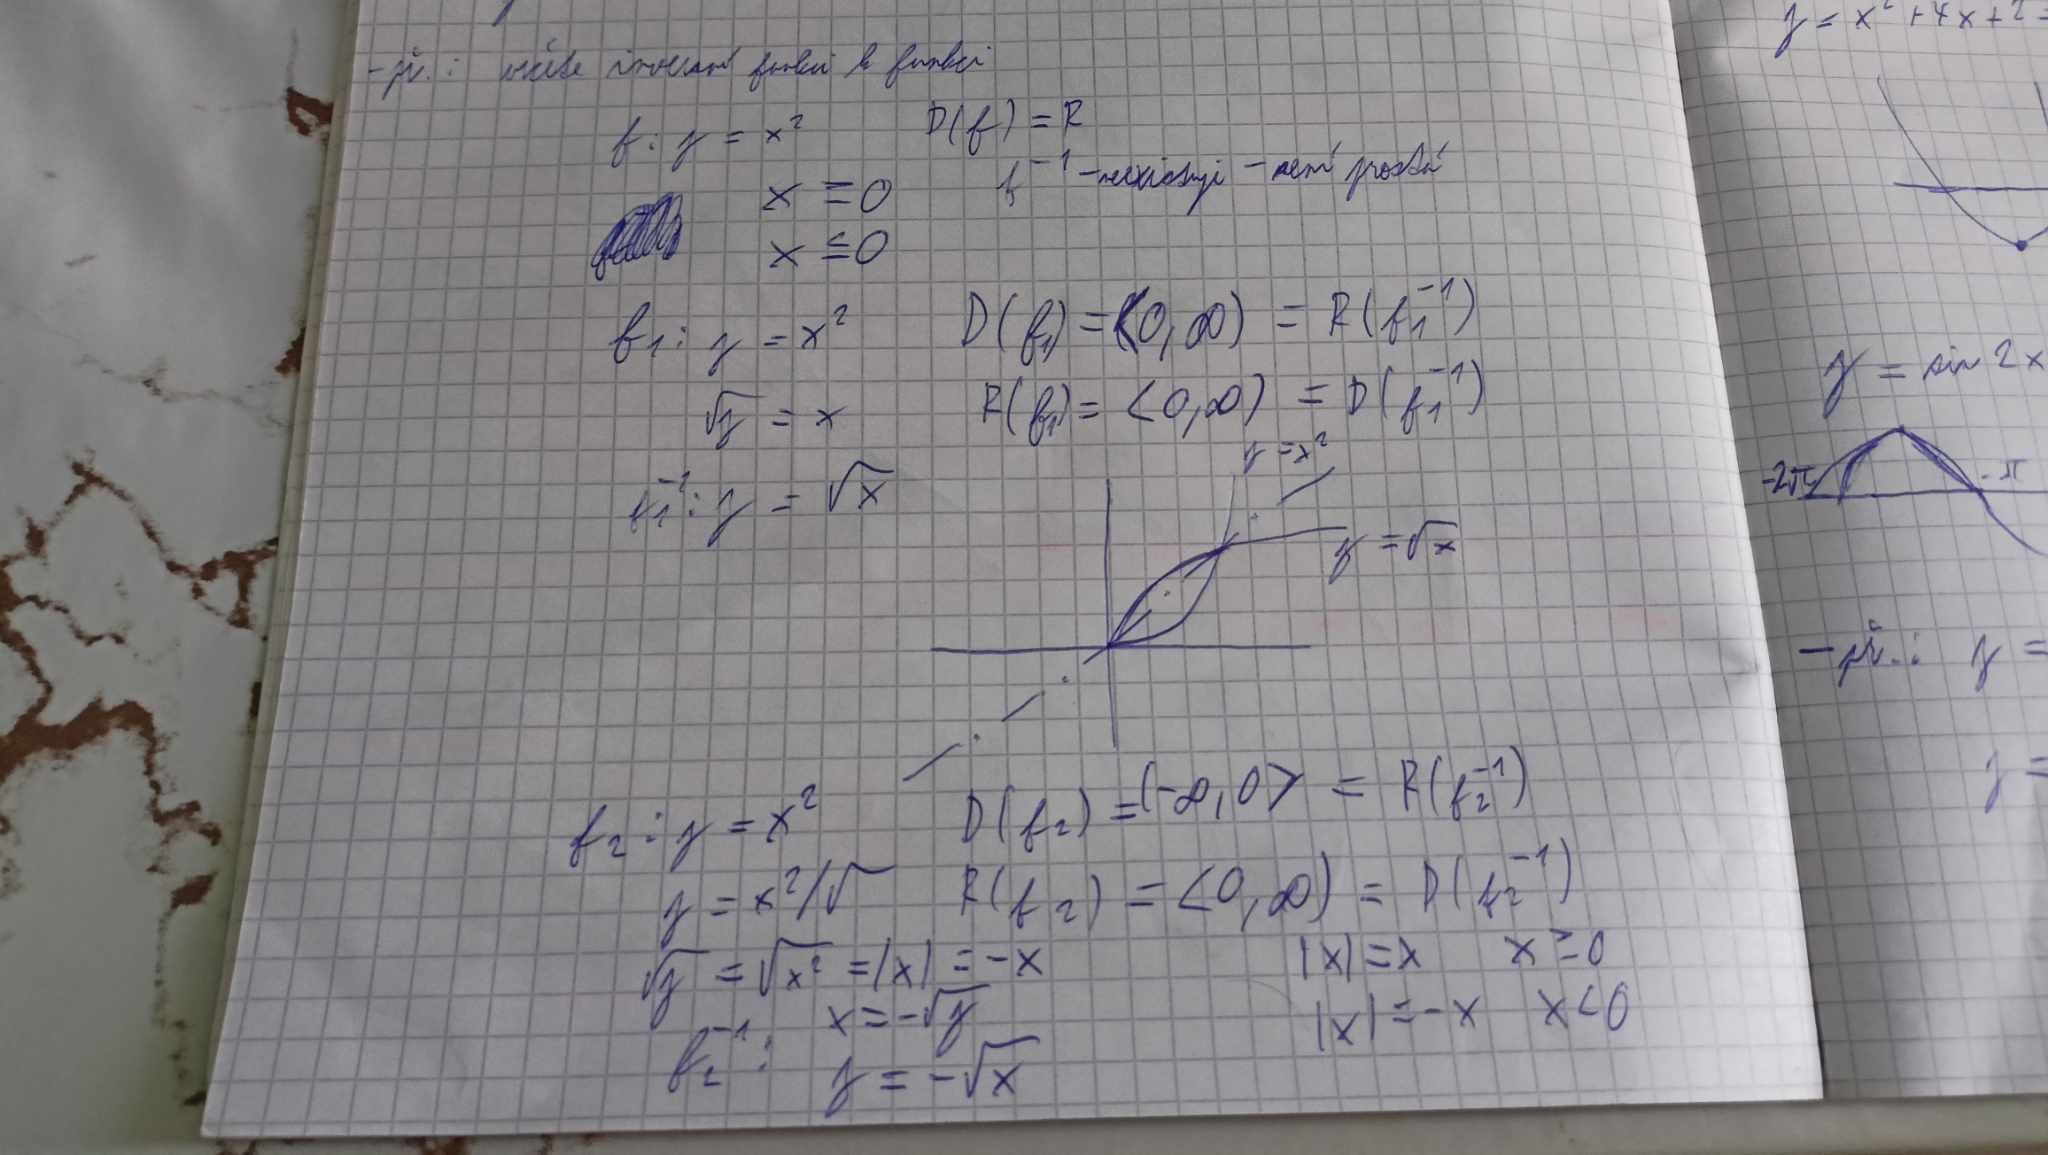 - př.: určete inverzní funkci k funkci
f: y = x² D(f) = R
x ≥ 0 f⁻¹ - neexistuje - není prostá
x ≤ 0
f₁: y = x² D(f₁) = <0, ∞) = R(f₁⁻¹)
√y = x R(f₁) = <0, ∞) = D(f₁⁻¹)
y = x²
f₁⁻¹: y = √x
y = √x
f₂: y = x² D(f₂) = (-∞, 0> = R(f₂⁻¹)
y = x² /√ R(f₂) = <0, ∞) = D(f₂⁻¹)
√y = √x² = |x| = -x |x| = x x ≥ 0
x = -√y |x| = -x x < 0
f₂⁻¹: y = -√x
y = x² + 4x + 2 =
y = sin 2x
-2π -π
- př.: y =
y =